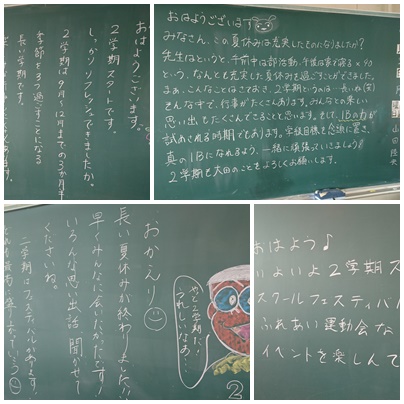 おはようございます。
2学期スタートです。
しっかりリフレッシュできましたか。
2学期は9月〜12月までの3か月半
季節を3つ過ごすことになる
長い学期です。
おはようございます
みなさん、この夏休みは充実したものになりましたか?
先生はというと、午前中は部活動、午後は家で寝る×40
という、なんとも充実した夏休みを過ごすことができました。
まぁ、こんなことはさておき、2学期というのは…長いね(笑)
そんな中で、行事がたくさんあります。みんなとの楽しい
思い出もたくさんできることと思います。そして、1Bの力が
試される時期でもあります。学級目標を念頭に置き、
真の1Bになれるよう、一緒に頑張っていきましょう!
2学期も
のことをよろしくお願いします。
おかえり
長い夏休みが終わりました!!
早くみんなに会いたかったです!
いろんな思い出話、聞かせて
くださいね。
二学期はフェスティバルがあります!
やっと2学期だ!
うれしいなあ…
2
おはよう♪
いよいよ2学期ス
スクールフェスティバル
ふれあい運動会な
イベントを楽しんで